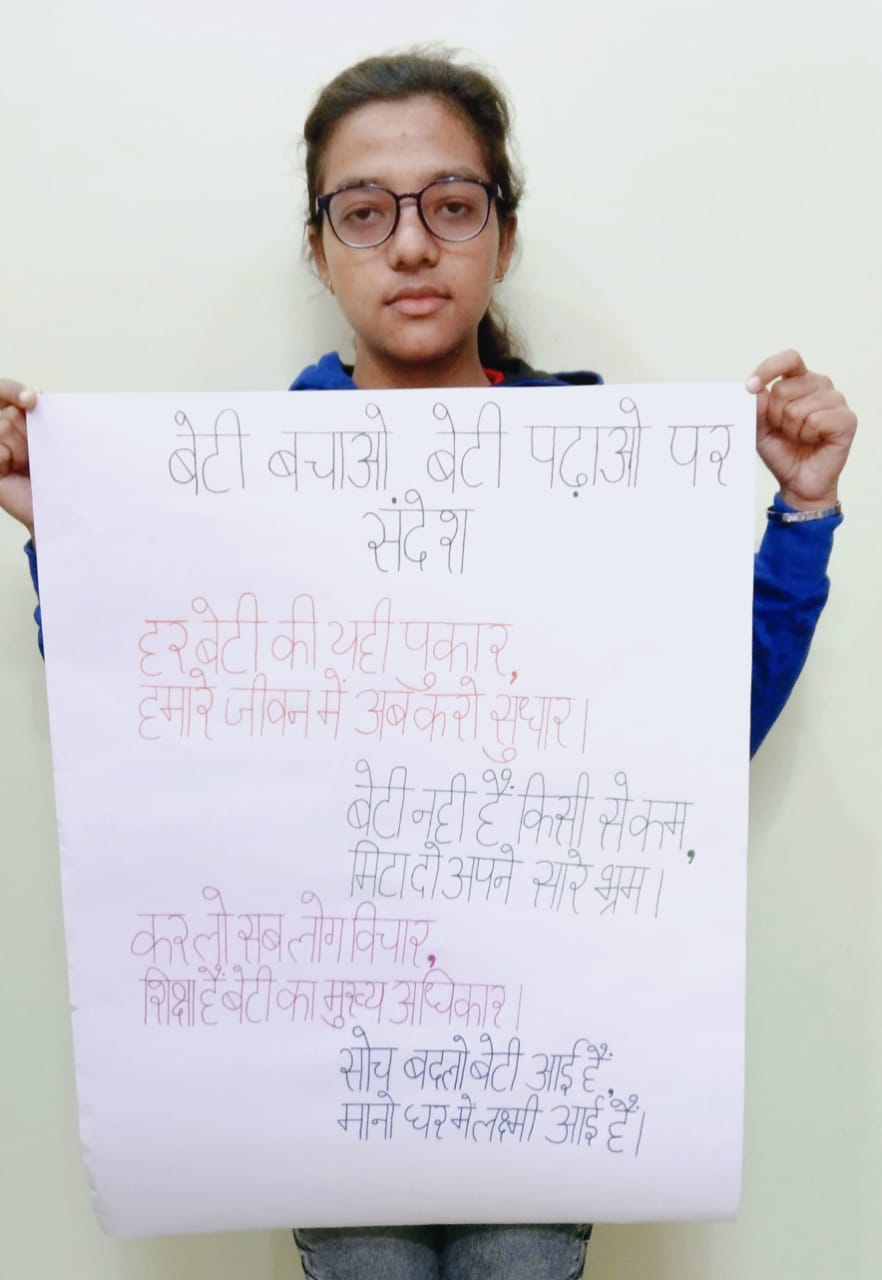 बेटी बचाओ बेटी पढ़ाओ पर
संदेश
हर बेटी की यही पुकार,
हमारे जीवन में अब करो सुधार।
बेटी नही हैं किसी से कम,
मिटा दो अपने सारे भ्रम।
कर लो सब लोग विचार,
शिक्षा हैं बेटी का मुख्य अधिकार।
सोच बदलो बेटी आई हैं,
मानो घर में लक्ष्मी आई हैं।